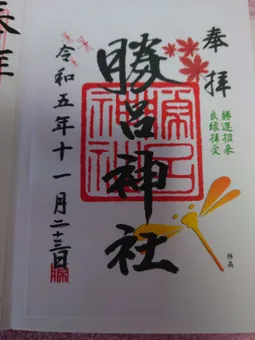 奉拝
勝運招来
良縁拝受
勝呂神社
勝呂神社
令和五年十一月二十三日
勝虫
奉拝